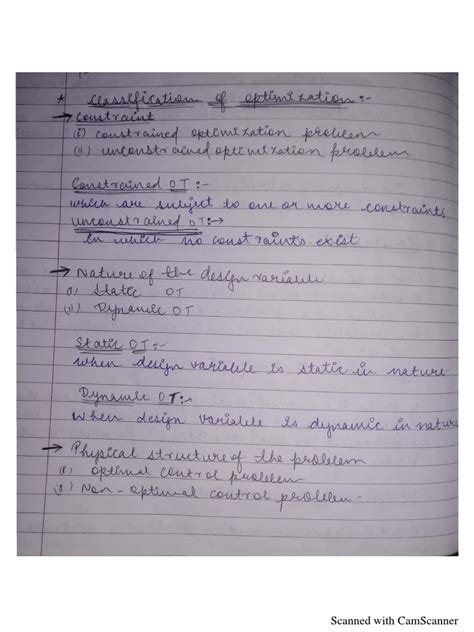 * classification of optimization :-
→ Constraint
(i) constrained optimization problem
(ii) unconstrained optimization problem
Constrained OT :-
which are subject to one or more constraints
Unconstrained OT :→
In which no constraints exist.
→ Nature of the design variable
(i) Static OT
(ii) Dynamic OT
Static OT :-
When design variable is static in nature
Dynamic OT :-
When design variable is dynamic in nature
→ Physical structure of the problem
(i) optimal control problem
(ii) Non-optimal control problem.
Scanned with CamScanner